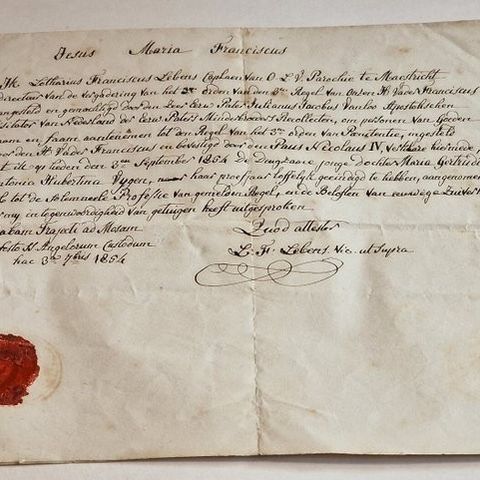 Jesus Maria Franciscus
Ik Lotharius Franciscus Lebens Caplaen van O. L. V. Parochie te Maestricht
directeur van de vergadering van het 3e orden van den 3e Regel van Onzen H. Vader Franciscus
aangesteld en gemachtigd door den Zeer Eerw. Pater Jacobus Apostolischen
Visitator van Nederland der Eerw. Paters Minderbroeders Recollecten, om personen van Goeden
naam en faam aanteneemen tot den Regel van het 3e orden van Penitentie, ingesteld
door den H. Vader Franciscus en bevestigd door en Paus Nicolaus IV, verklare hiermede
dat ik op heden den 3en September 1854 de Deugdzame jonge Dochter Maria Gertrudis
Antonia Hubertina na haar proefjaar loffelijk geeindigd te hebben, aangenomen
heb tot de Solemneele Professie van gemelden Regel, en de Beloften van eeuwige Zuiverheid
in mijn en in tegenwoordigheid van getuigen heeft uitgesproken
Trajecti ad Mosam
festo SS. Angelorum Custodum
hac 3a 7bris 1854
Quod attestor
L. F. Lebens ut Supra